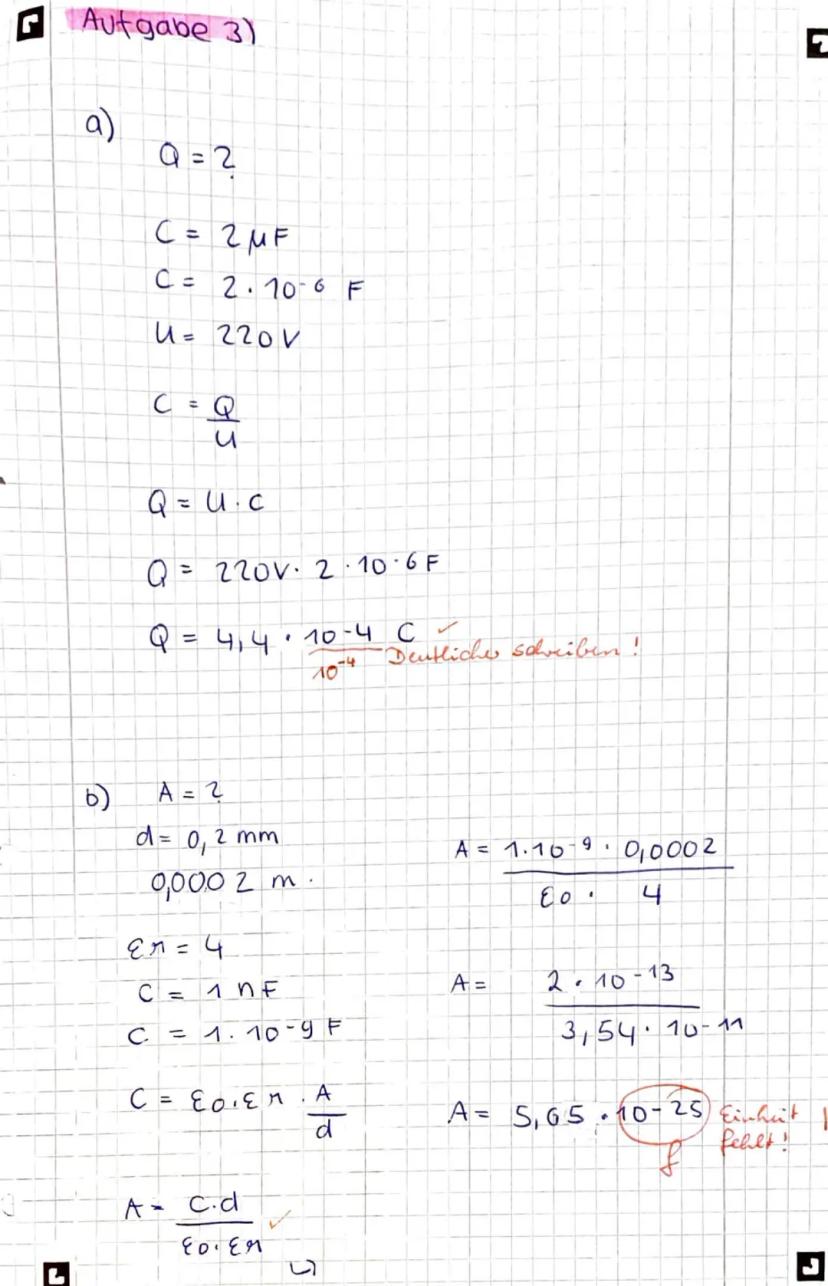 Aufgabe 3)
a)
Q = ?
C = 2 μF
C = 2 · 10-6 F
U = 220 V
C = Q/U
Q = U · C
Q = 220V · 2 · 10-6 F
Q = 4,4 · 10-4 C ✓
10⁻⁴ Deutlicher schreiben!
b) A = ?
d = 0,2 mm
0,0002 m.
εr = 4
C = 1 nF
C = 1 · 10-9 F
C = ε0 · εr · A/d
A = C·d/ε0·εr ✓
A = 1·10-9 · 0,0002/ε0 · 4
A = 2 · 10-13/3,54 · 10-11
A = 5,65 · 10-25 Einheit
fehlt!
f